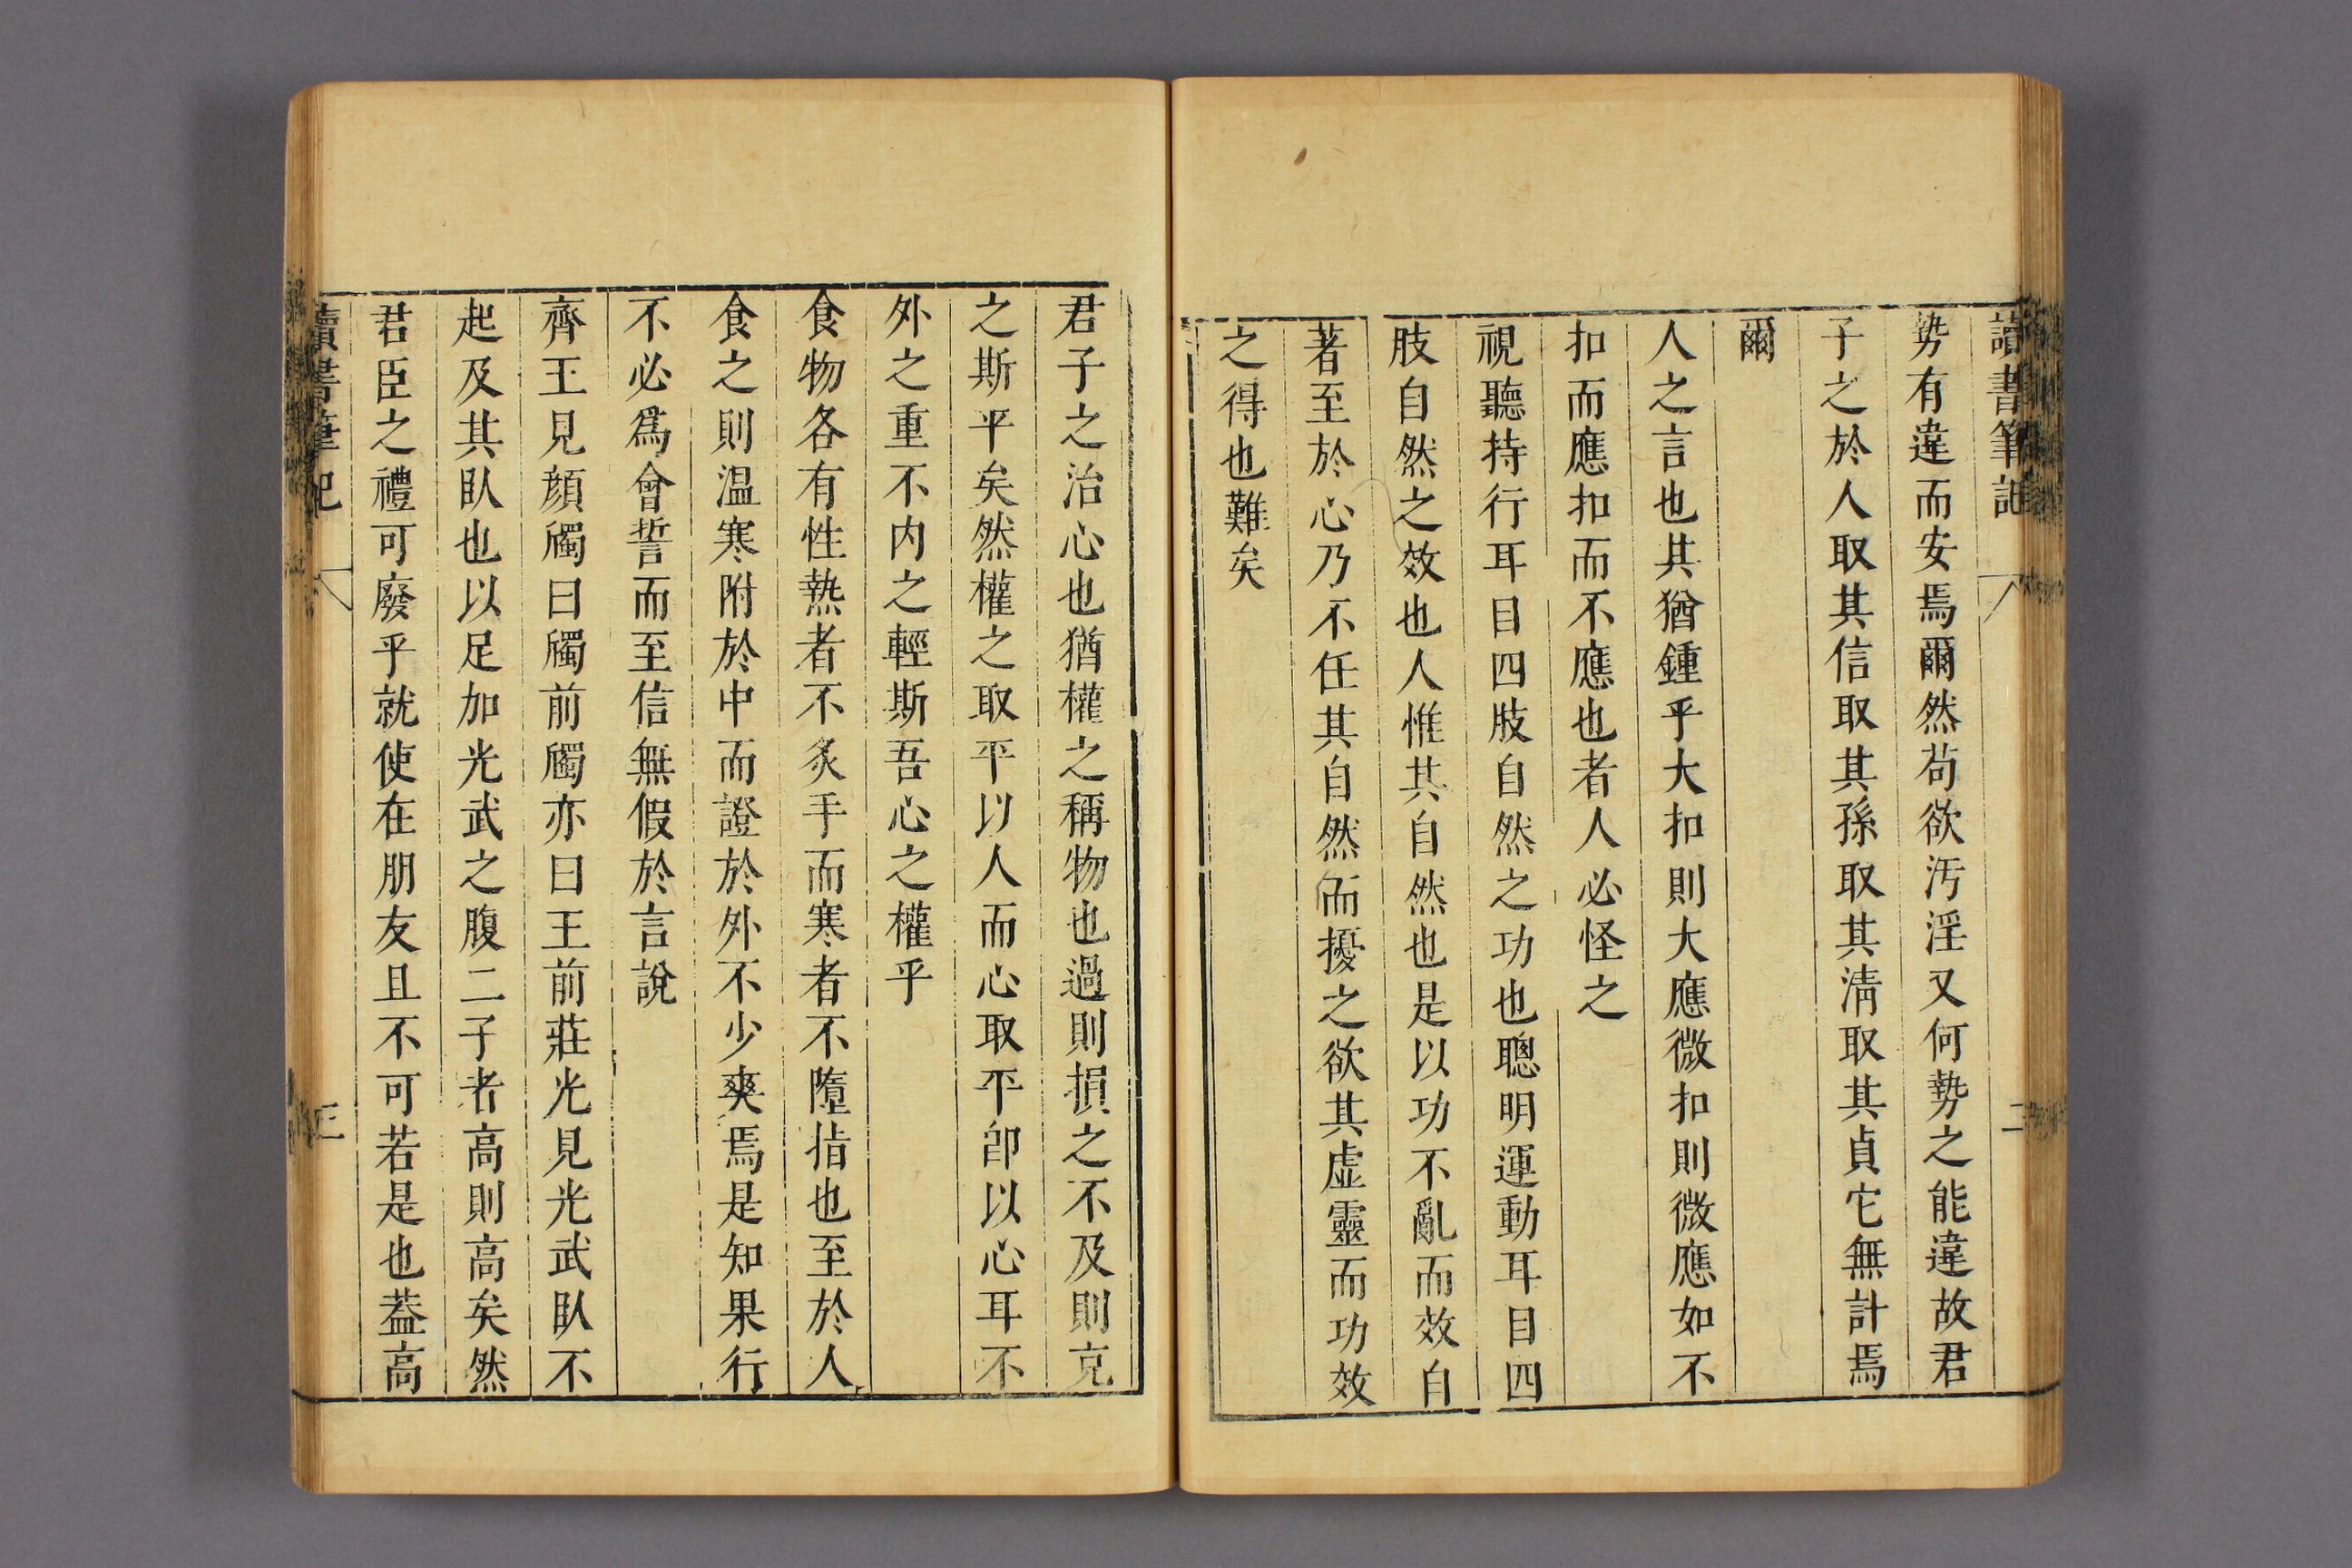 讀書筆記 二
势有違而安焉爾然苟欲汚淫又何勢之能違故君
子之於人取其信取其孫取其淸取其貞它無計焉
爾
人之言也其猶鍾乎大扣則大應微扣則微應如不
扣而應扣而不應也者人必怪之
視聽持行耳目四肢自然之功也聰明運動耳目四
肢自然之效也人惟其自然也是以功不亂而效自
著至於心乃不任其自然而擾之欲其虛靈而功效
之得也難矣
君子之治心也猶權之稱物也過則損之不及則克
之斯平矣然權之取平以人而心取平卽以心耳不
外之重不内之輕斯吾心之權乎
食物各有性熱者不炙手而寒者不墮指也至於人
食之則温寒附於中而證於外不少爽焉是知果行
不必爲會誓而至信無假於言說
齊王見顔斶曰斶前斶亦曰王前莊光見光武臥不
起及其臥也以足加光武之腹二子者高則高矣然
君臣之禮可廢乎就使在朋友且不可若是也葢高
讀書筆記 三